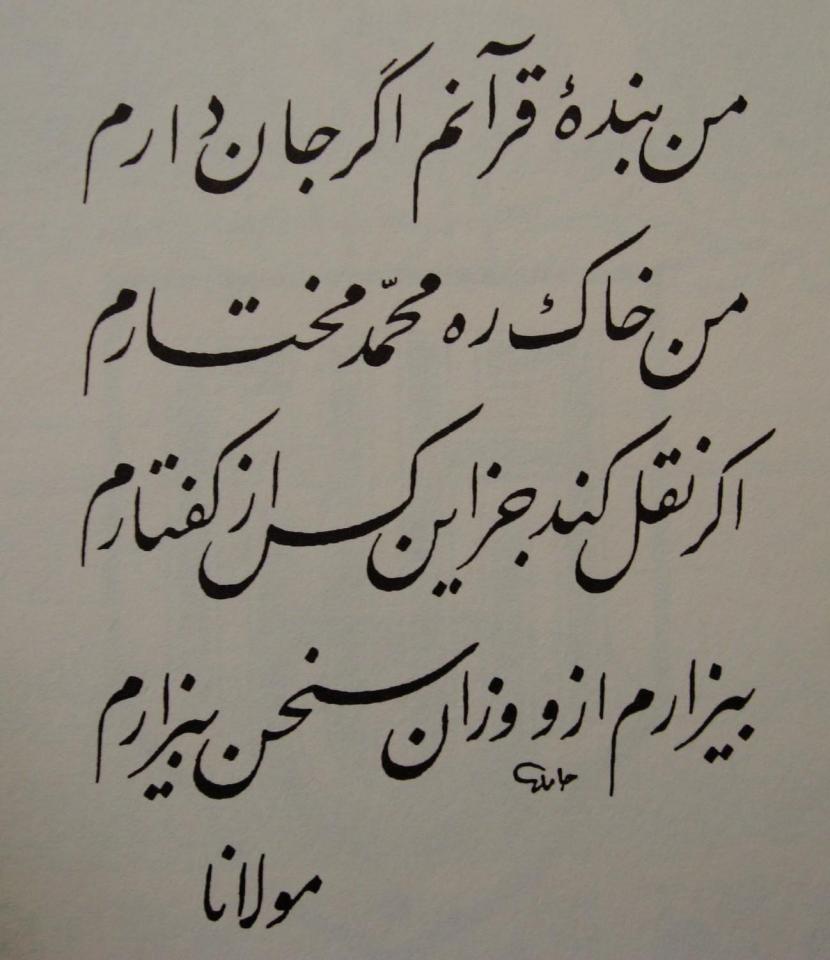 من بندهٔ قرآنم اگر جان دارم
من خاك ره محمّد مختارم
اگر نقل كند جز این كس از گفتارم
بیزارم ازو وزان سخن بیزارم
مولانا